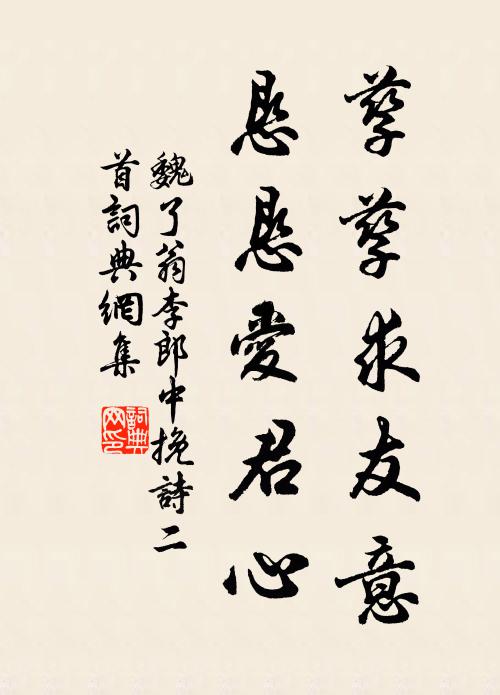 孳孳求友意
恳恳愛君心
魏了翁李郎中挽詩二
首詞典網集
詞典
网印